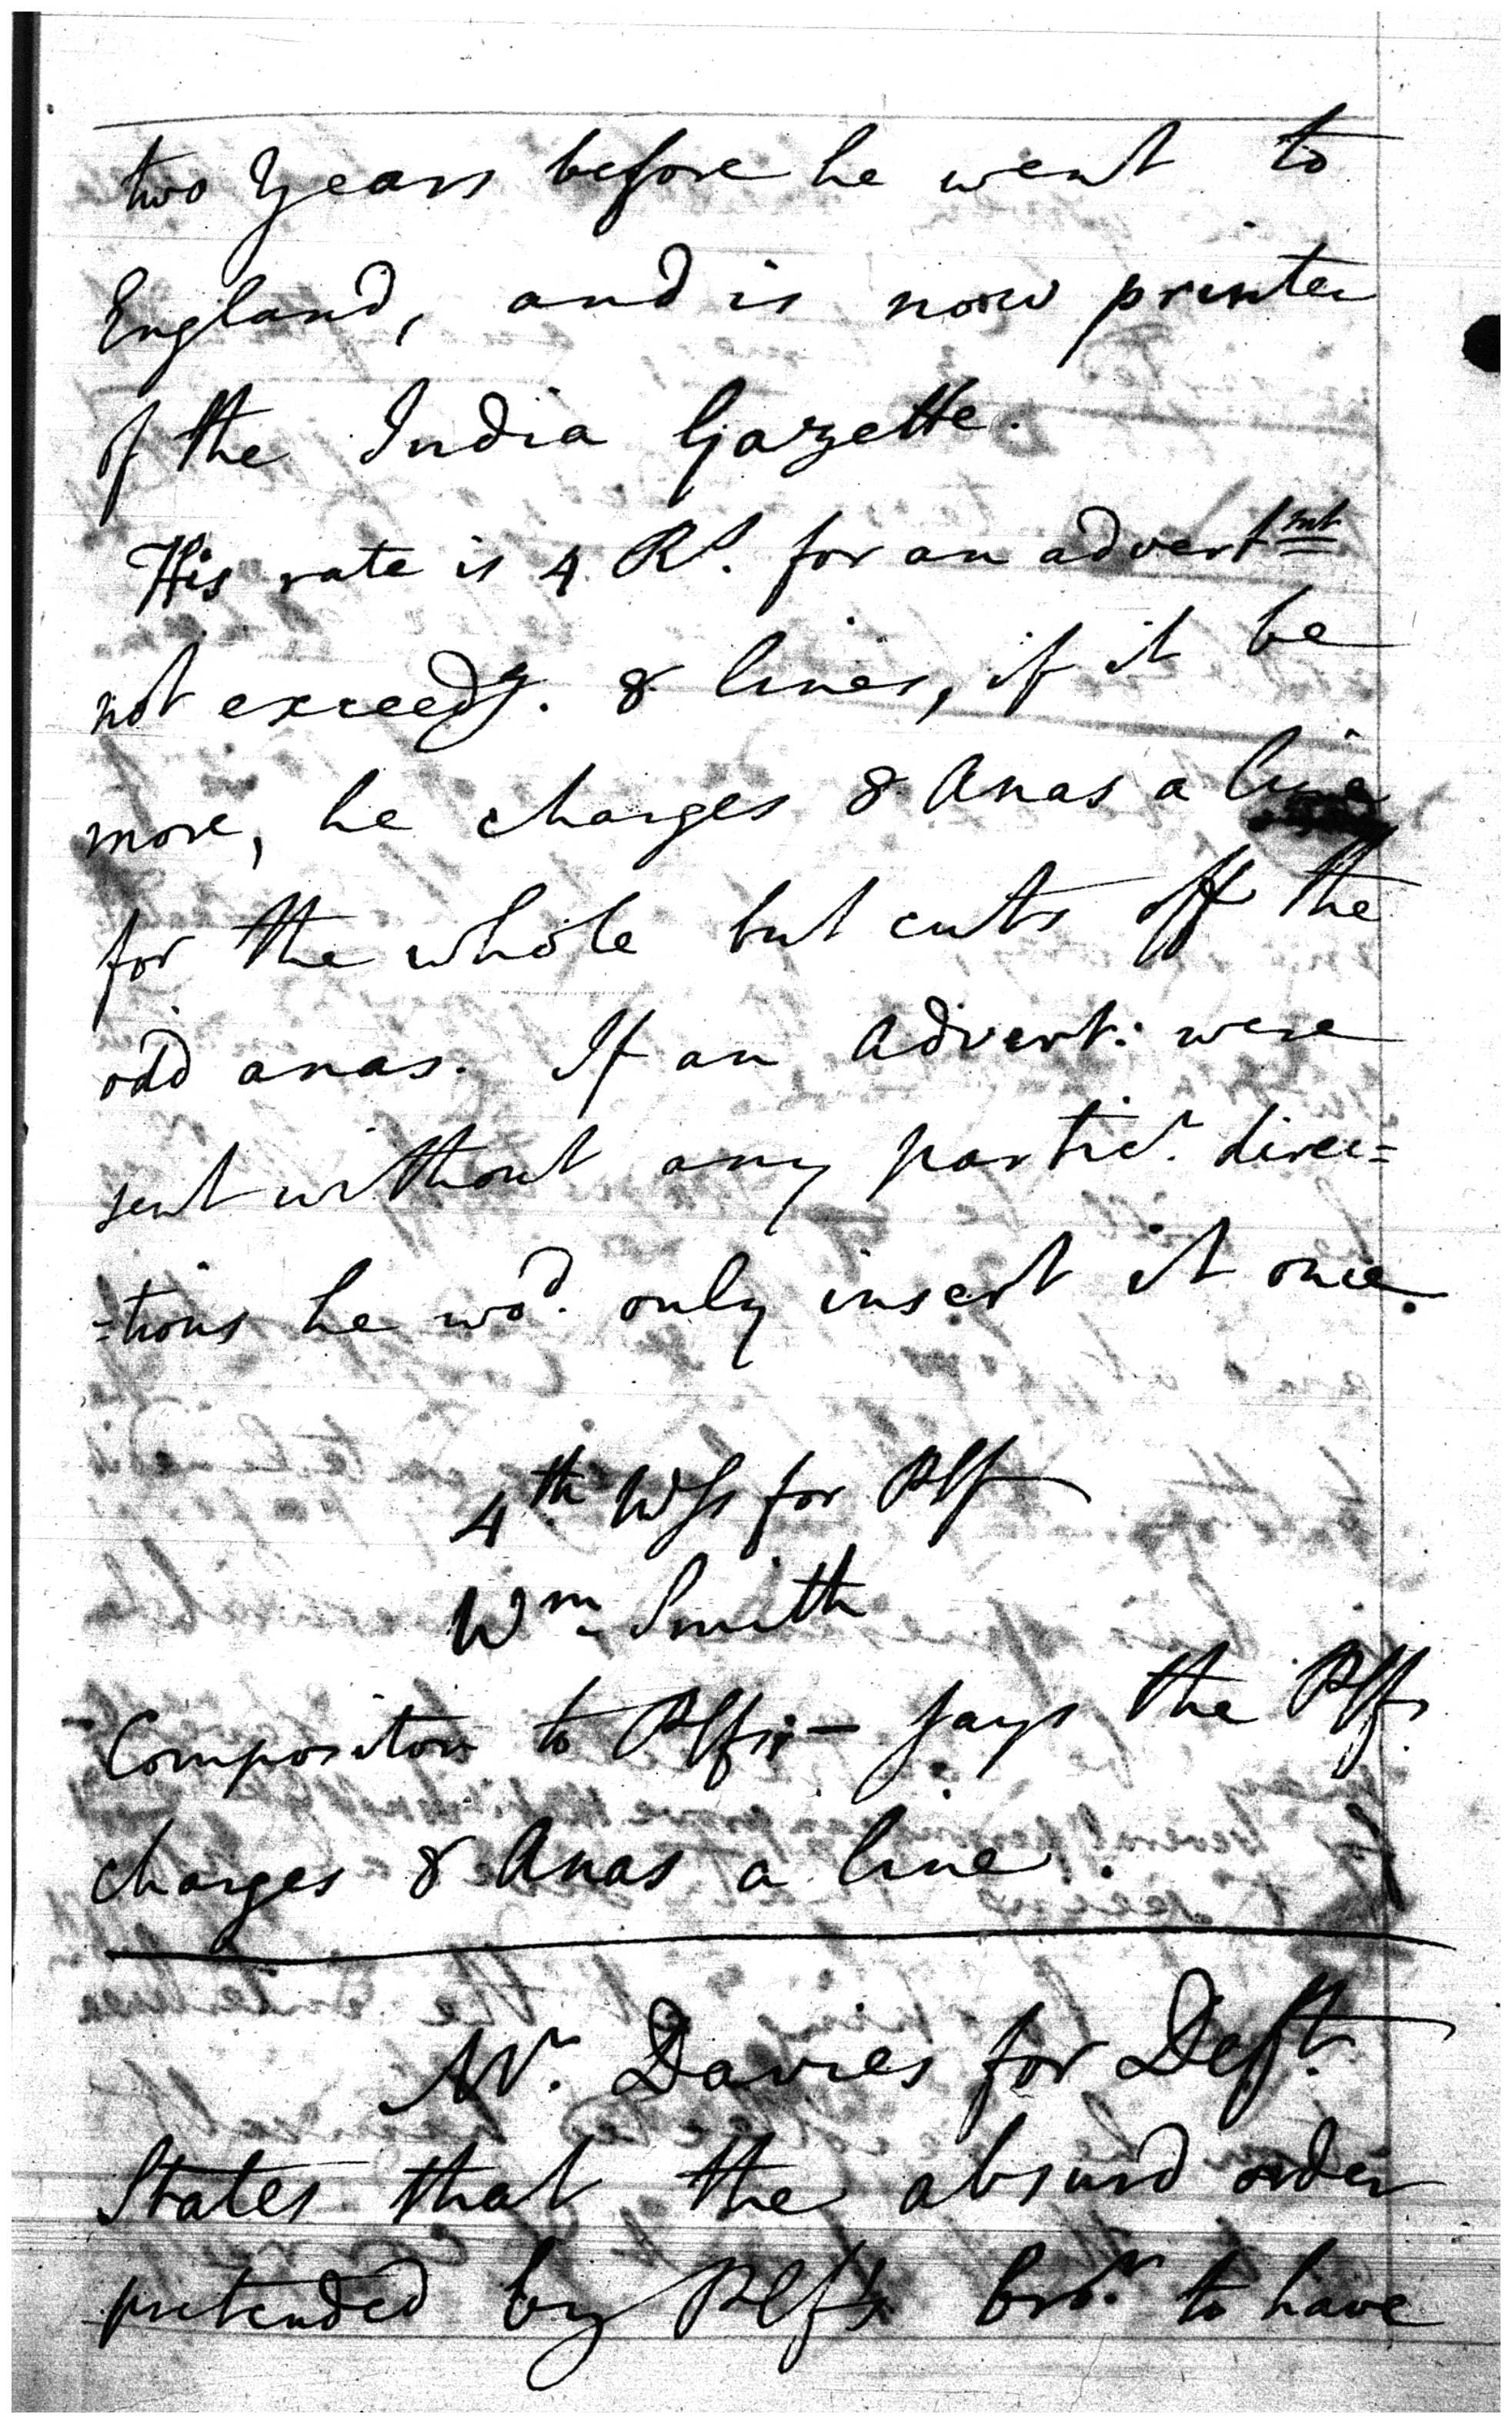 two Years before he went to
England, and is now printer
of the India Gazette.
His rate is 4 Rs. for an advertmt
not exceedg. 8 lines, if it be
more, he charges 8 Anas a line
for the whole but cuts off the
odd anas. If an Advert: were
sent without any particr. direc=
=tions he wod. only insert it once.
4th Wss for Plf
Wm Smith
Compositor to Plf; – says the Plf.
charges 8 Anas a line.
Mr. Davies for Deft.
States that the absurd order
pretended by Plfs bror. to have